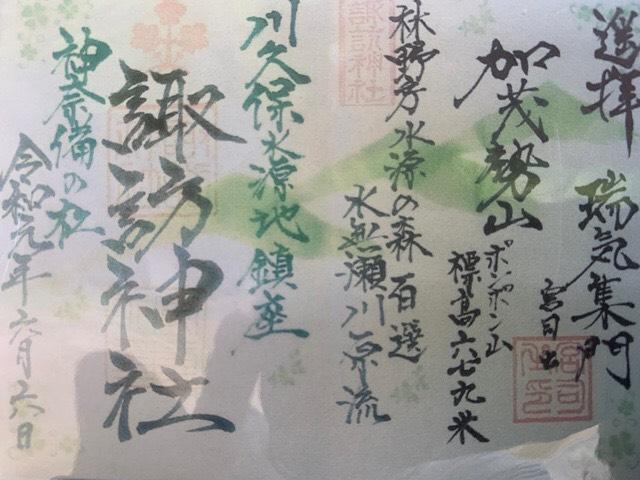 遥拝
瑞気集門
宮司出
加茂勢山
ポンポン山
標高六七九米
林野庁水源の森百選
水無瀬川原流
川久保水源地鎮座
諏訪神社
神奈備の社
令和元年六月六日
諏訪神社
宮司之印